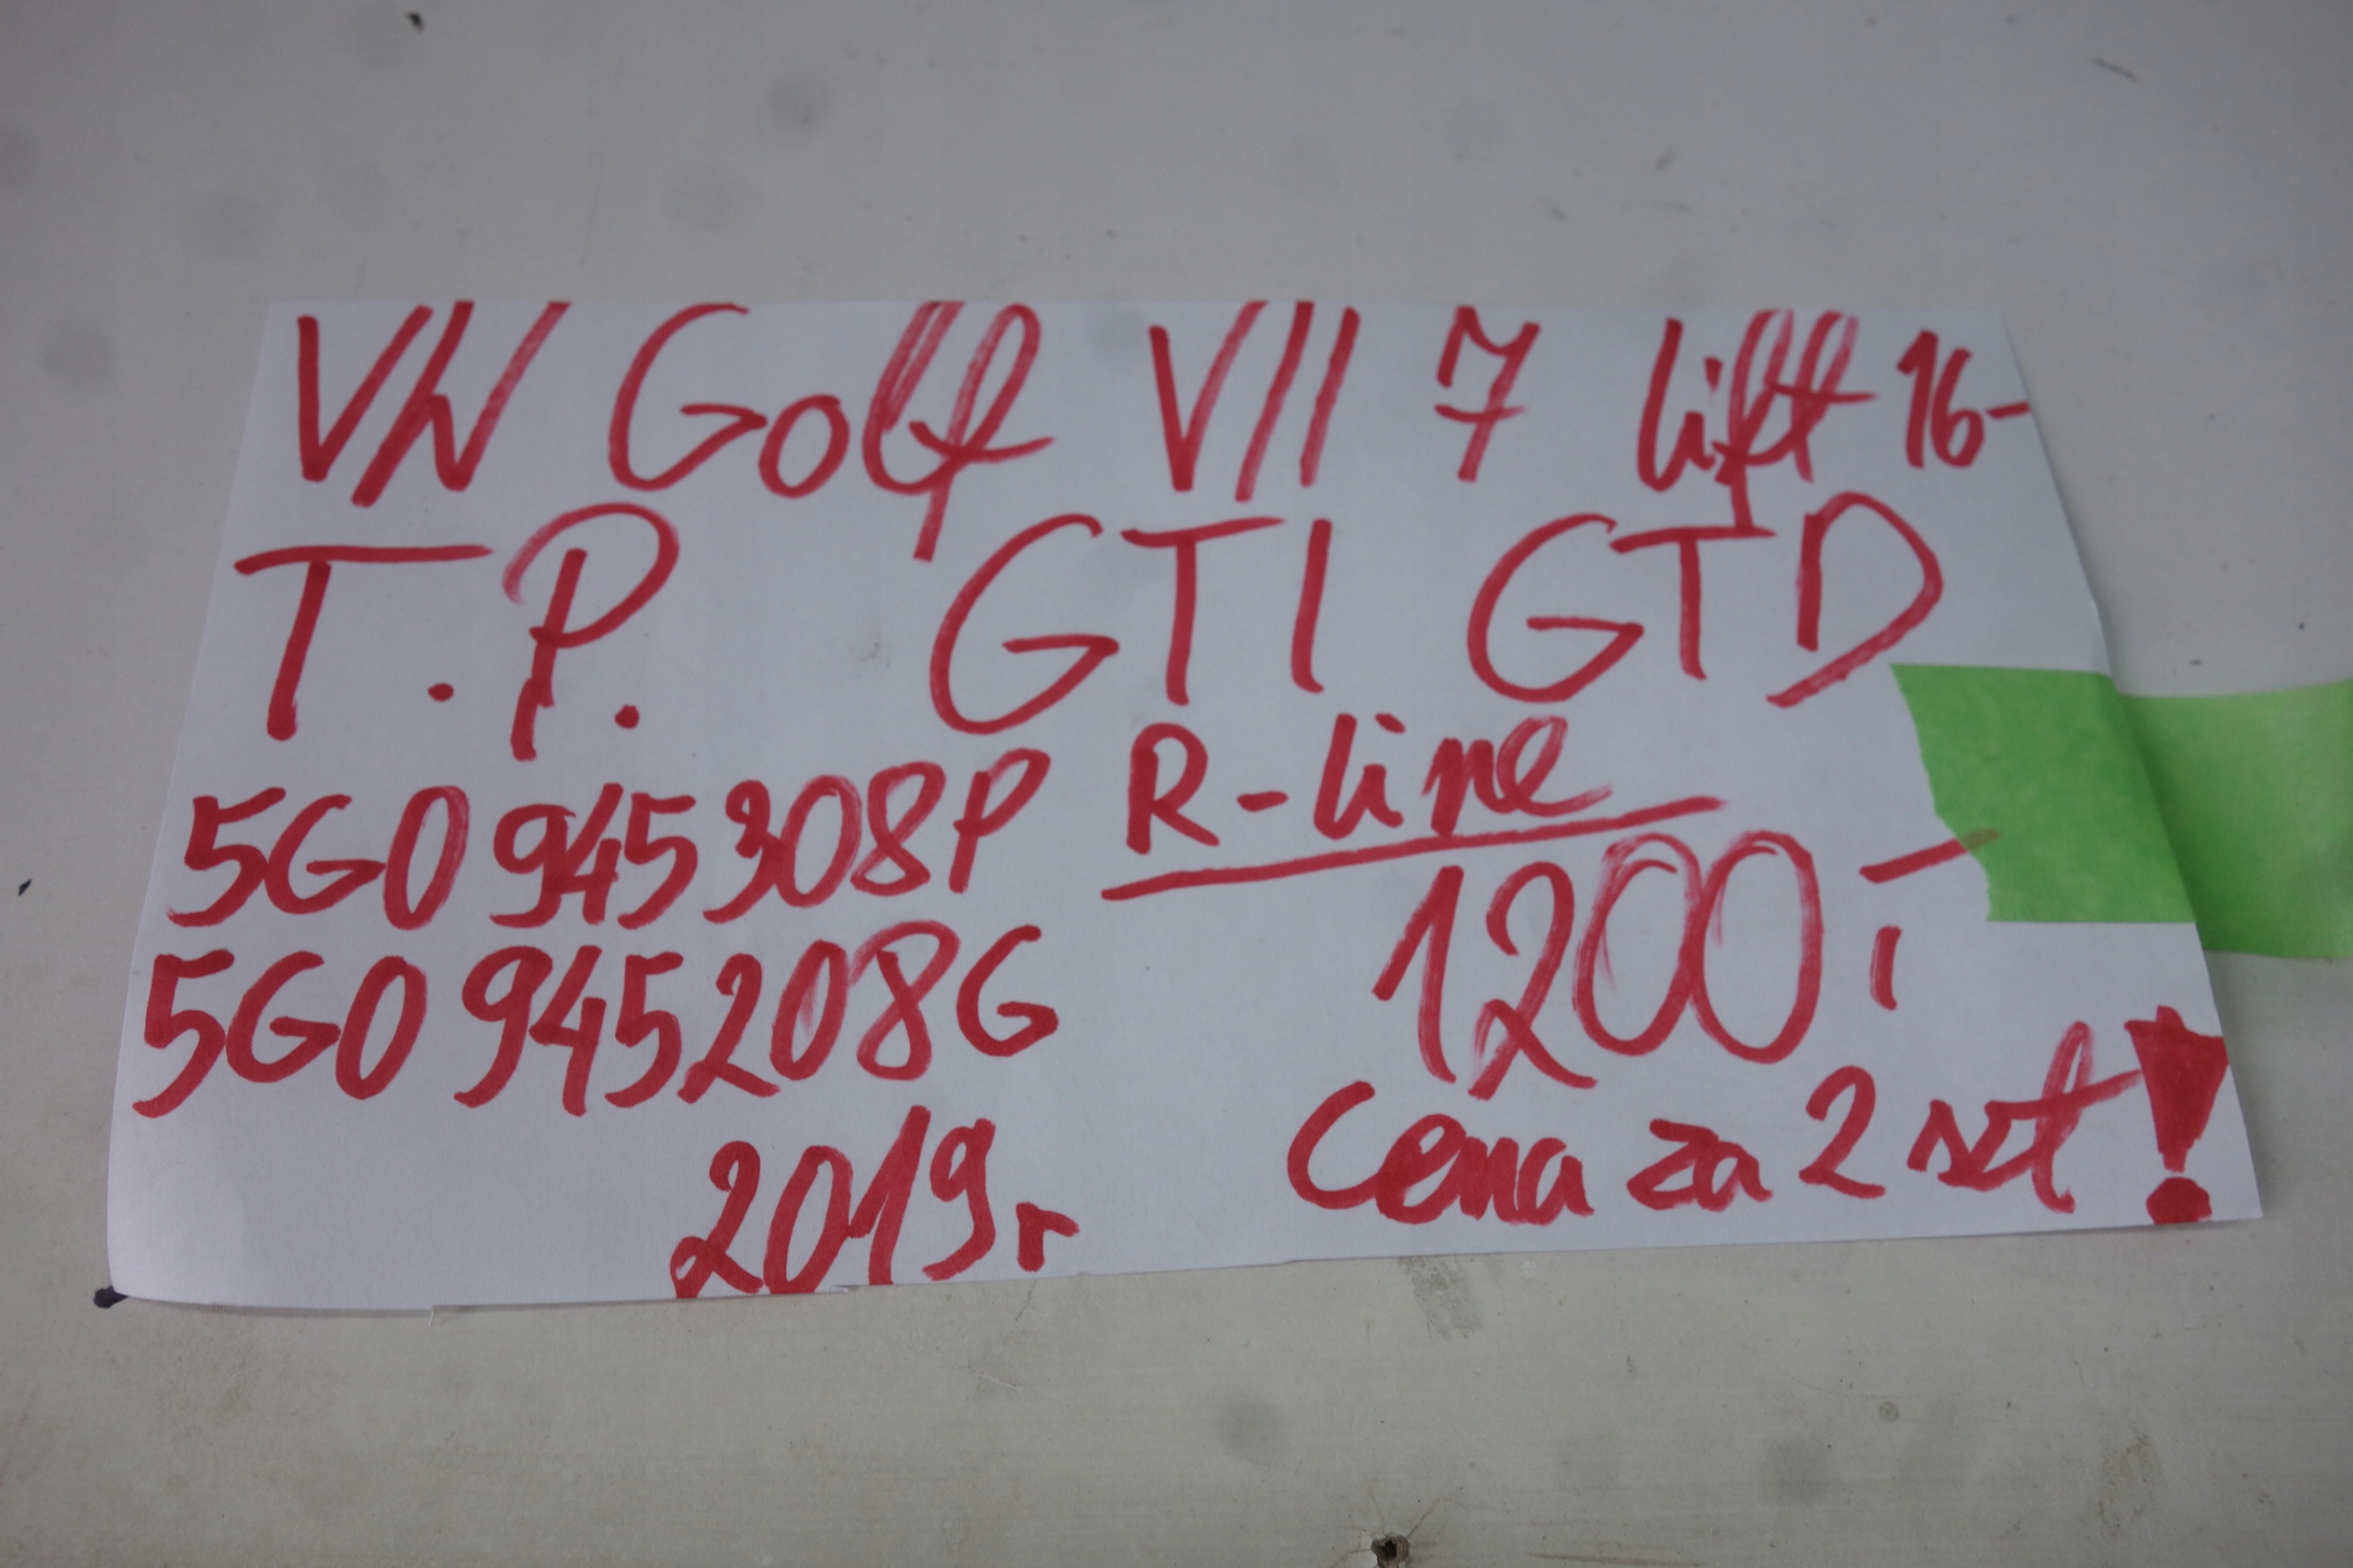 VW Golf VII 7 lift 16-
T.P. GTI GTD
R-line
5G0 945308P
5G0 945208G
1200,-
2019r
Cena za 2 szt!